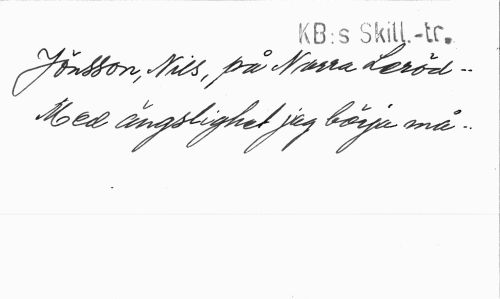 KB:s Skill.-tr.
Jönsson, Nils, på Norra Leröd --
Med ängslighet jag börja må --